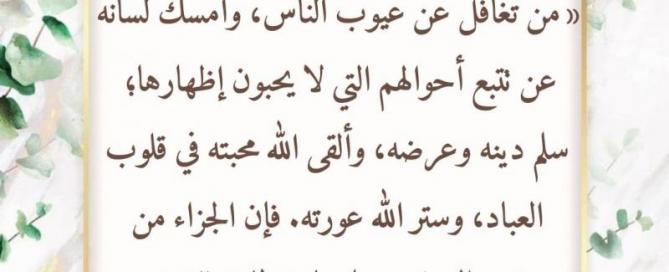 « من تغافل عن عيوب الناس، وأمسك لسانه
عن تتبع أحوالهم التي لا يحبون إظهارها؛
سلم دينه وعرضه، وألقى الله محبته في قلوب
العباد، وستر الله عورته. فإن الجزاء من